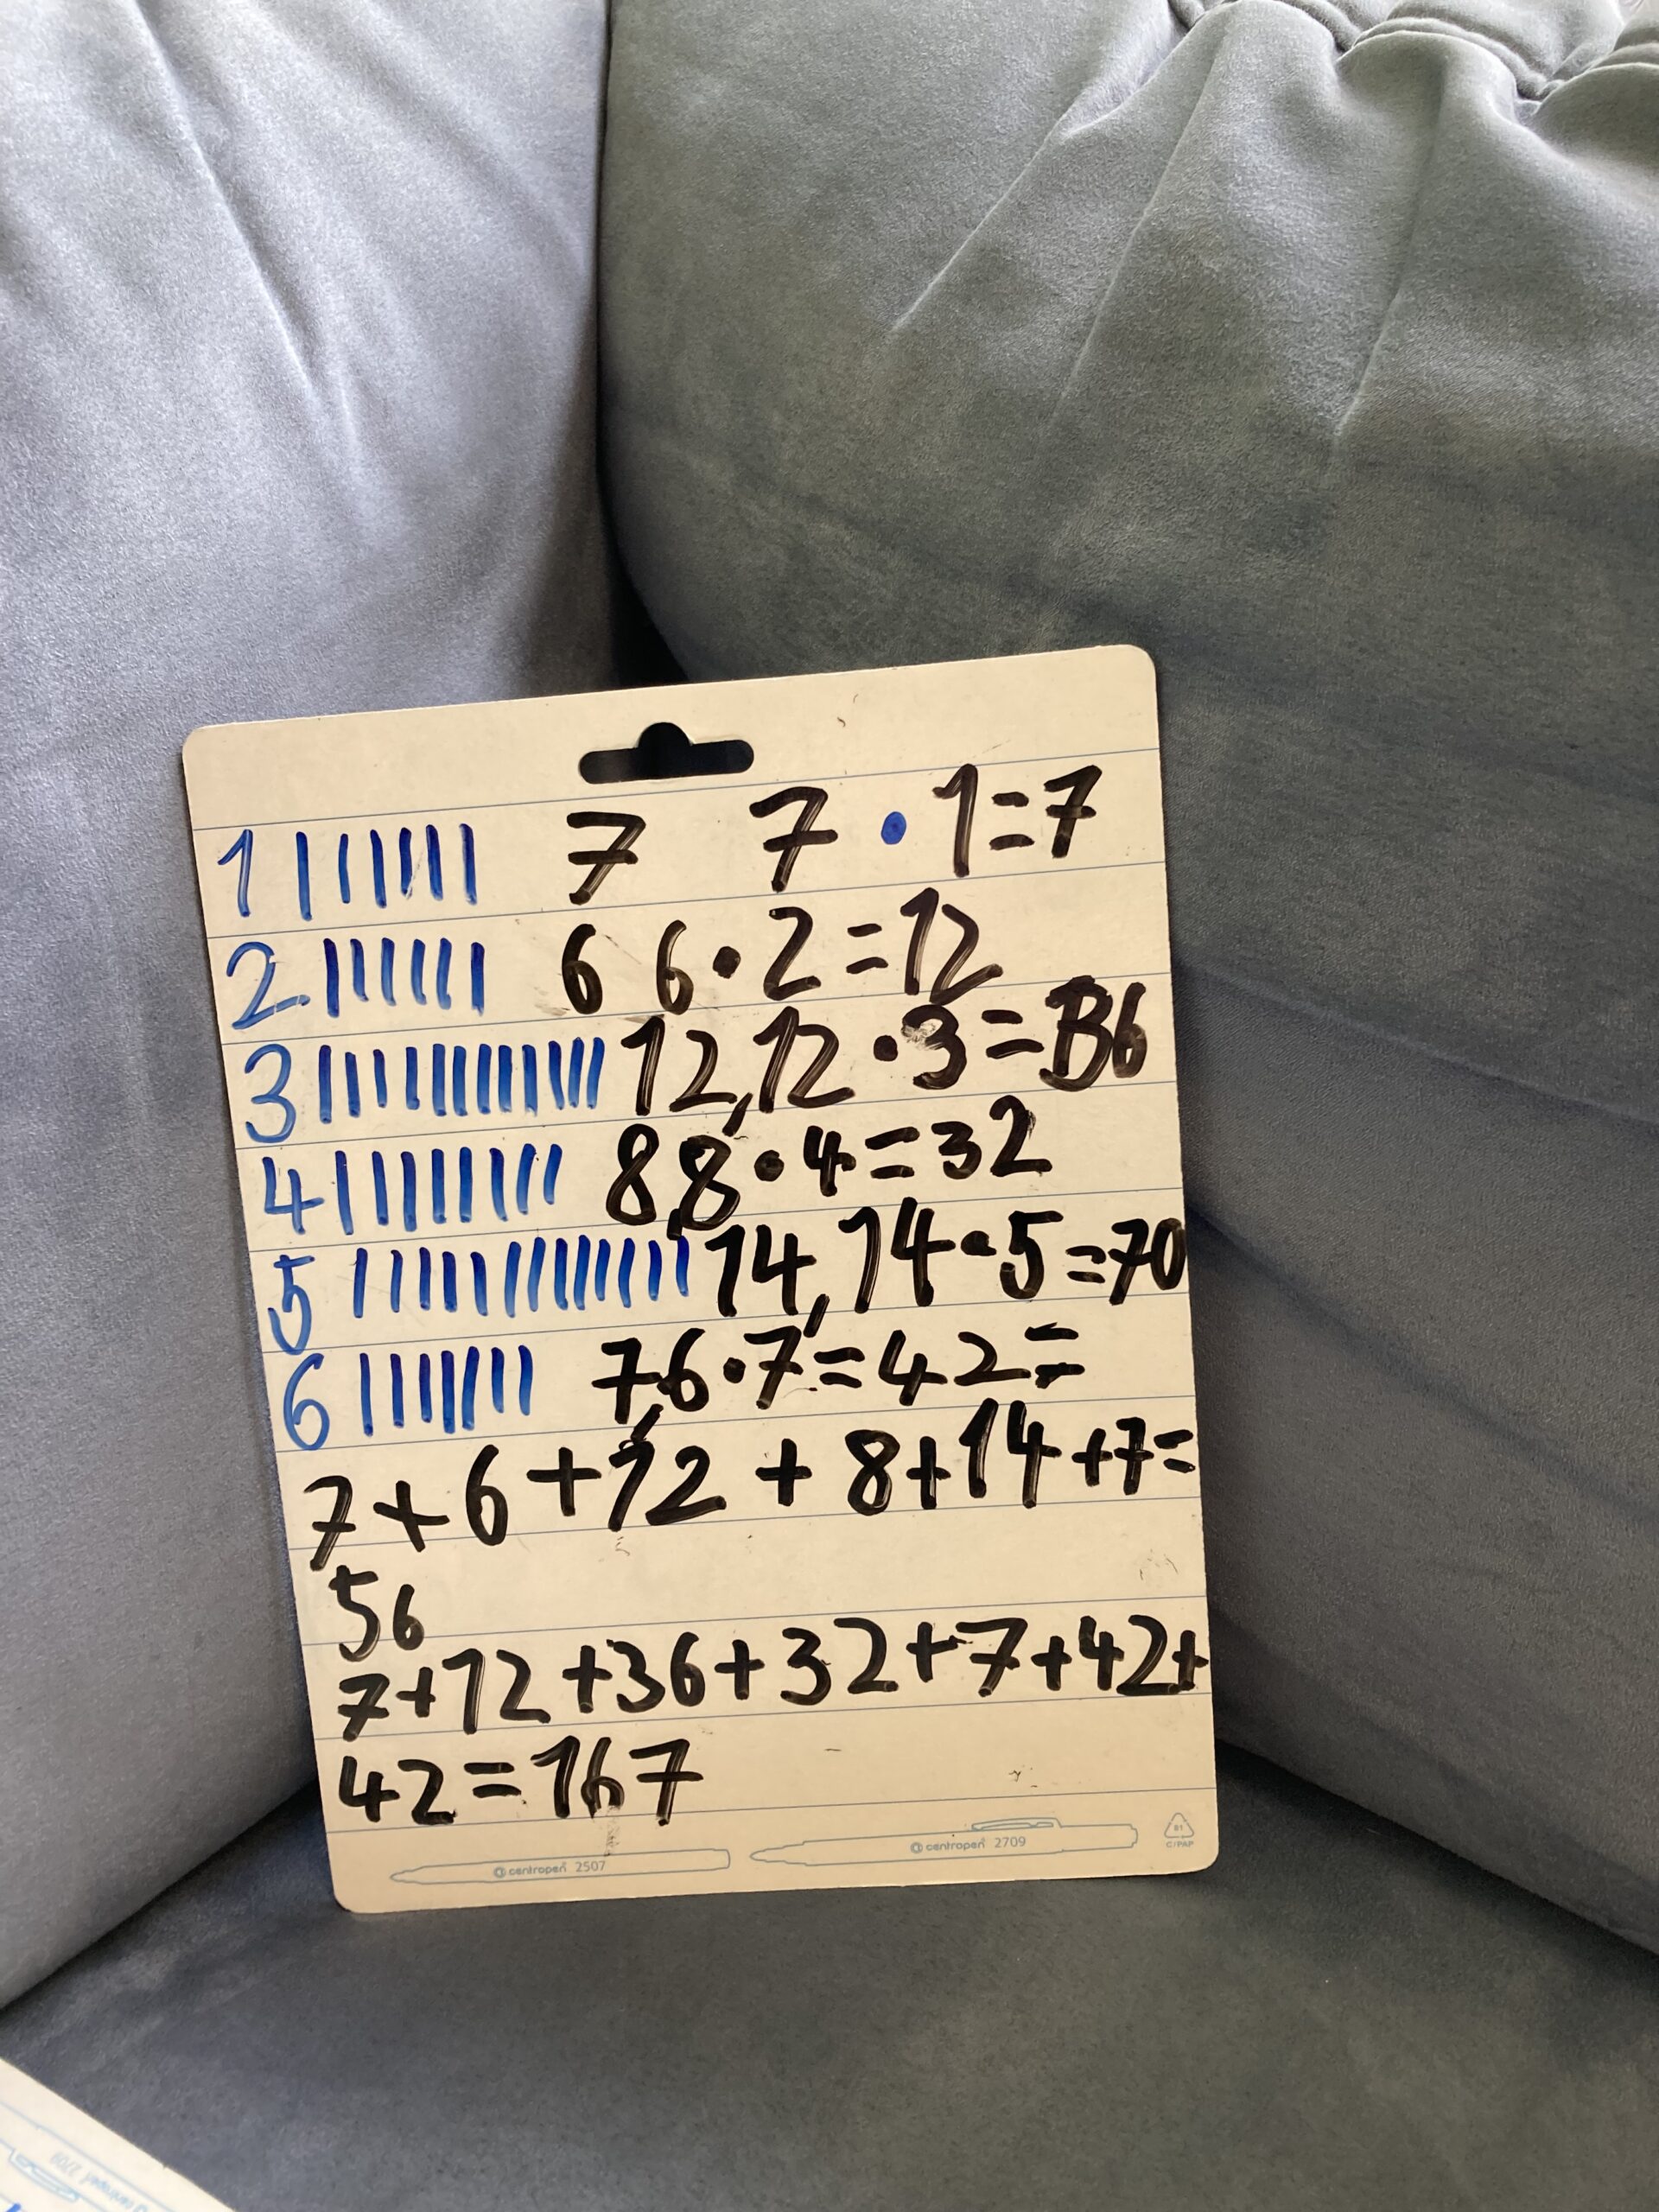 1 |||||| 7 7 · 1=7
2 |||||| 6 6·2=12
3 |||||||||||| 12,12 ·3=36
4 |||||||| 8,8·4=32
5 |||||||||||||| 14,14·5=70
6 ||||||| 7,6·7=42=
7+6+12+8+14+7=
56
7+12+36+32+7+42+
42=167
centropen 2507 centropen 2709 81 C/PAP